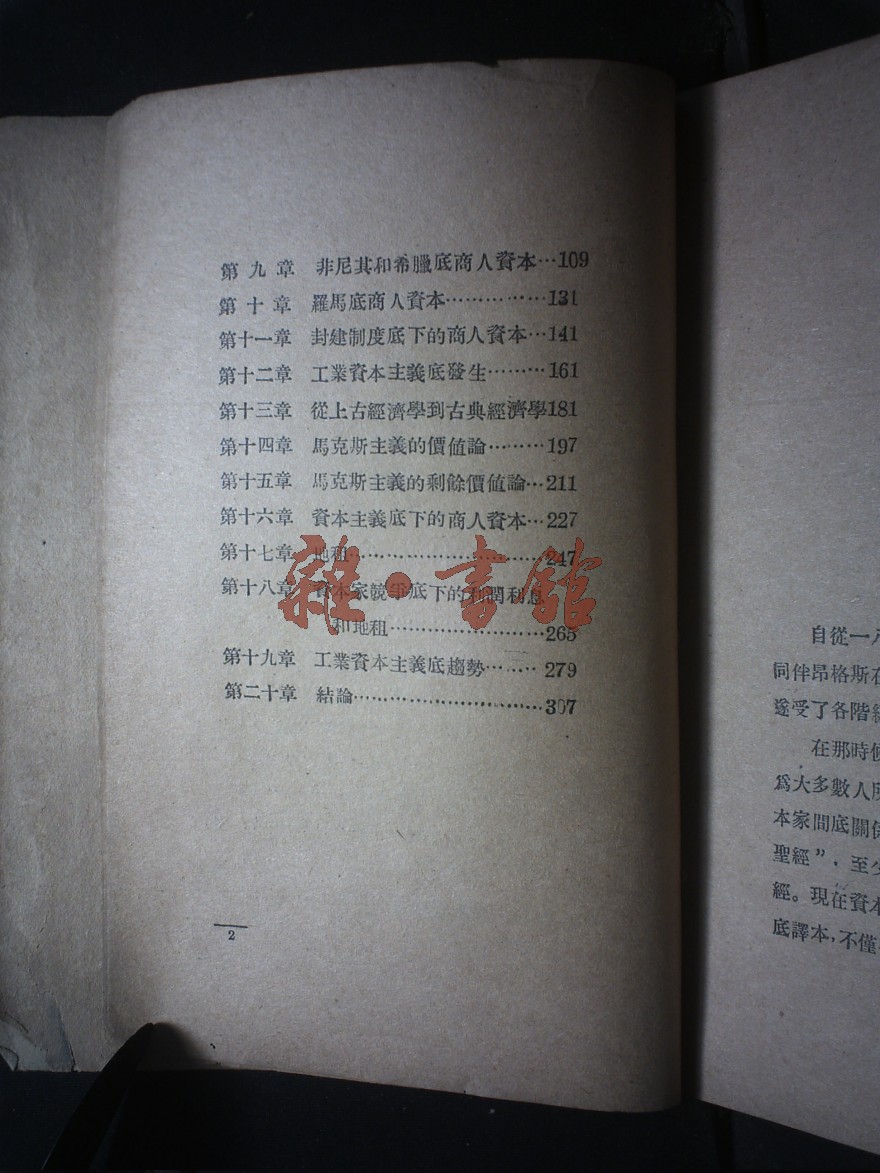 第九章 非尼其和希臘底商人資本…109
第十章 羅馬底商人資本……………131
第十一章 封建制度底下的商人資本…141
第十二章 工業資本主義底發生………161
第十三章 從上古經濟學到古典經濟學181
第十四章 馬克斯主義的價値論………197
第十五章 馬克斯主義的剩餘價値論…211
第十六章 資本主義底下的商人資本…227
第十七章 地租……………………………247
第十八章 資本家競爭底下的利潤利息
和地租……………………265
第十九章 工業資本主義底趨勢………279
第二十章 結論…………………………307
2
雜·書館
自從一八
同伴昂格斯在
遂受了各階級
在那時候
爲大多數人
本家間底關係
聖經”，至少
經。現在資本
底譯本，不僅